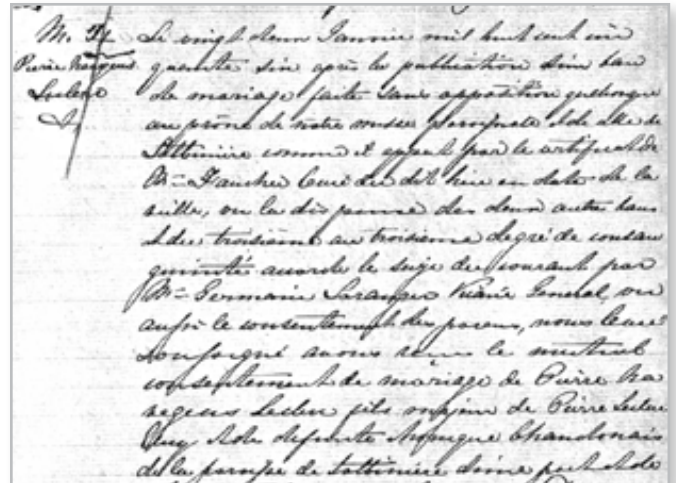 M. 
Pierre
Leclerc
Le vingt deux Janvier mil huit cent cin
quante six après la publication d'un ban
de mariage faite sans opposition quelconque
au prône de notre messe paroissiale & de celle de
Lotbinière comme il appert par le certificat de
Mr. Faucher Curé du dit lieu en date de la
veille, vu la dispense des deux autres bans
& du troisième au troisième degré de consan
guinité accordé le seize du courant par
Mr. Vicaire Général, vu
aussi le consentement des parens, nous Curé
soussigné avons reçu le mutuel
consentement de mariage de Pierre Na
Leclerc fils majeur de Pierre Leclerc
& de défunte Monique Chandonais
de la paroisse de Lotbinière d'une part & de